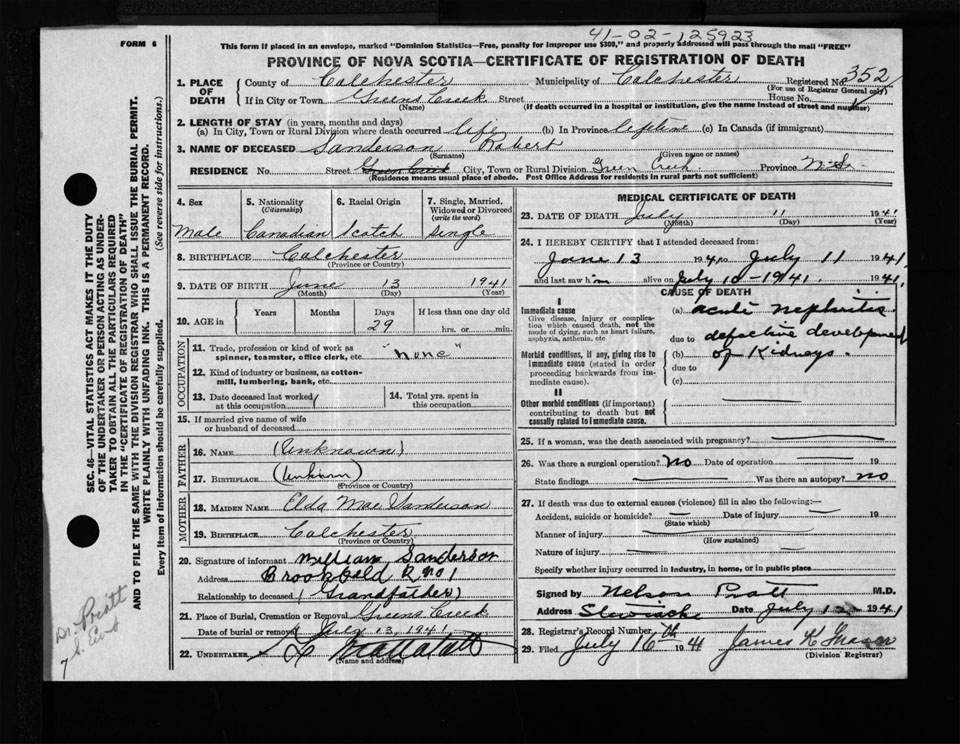 41-02-125923
FORM 6
This form if placed in an envelope, marked "Dominion Statistics—Free, penalty for improper use $300," and properly addressed will pass through the mail "FREE"
PROVINCE OF NOVA SCOTIA—CERTIFICATE OF REGISTRATION OF DEATH
1. PLACE OF DEATH County of Colchester Municipality of Colchester Registered No. 352
(For use of Registrar General only)
If in City or Town Greens Creek Street House No.
(Name) (If death occurred in a hospital or institution, give the name instead of street and number)
2. LENGTH OF STAY (in years, months and days)
(a) In City, Town or Rural Division where death occurred life (b) In Province lifetime (c) In Canada (if immigrant)
3. NAME OF DECEASED Sanderson Robert
(Surname) (Given name or names)
RESIDENCE No. Street Green Creek City, Town or Rural Division Green Creek Province N.S.
(Residence means usual place of abode. Post Office Address for residents in rural parts not sufficient)
4. Sex 5. Nationality (Citizenship) 6. Racial Origin 7. Single, Married, Widowed or Divorced (write the word)
Male Canadian Scotch Single
8. BIRTHPLACE Colchester
(Province or Country)
9. DATE OF BIRTH June 13 1941
(Month) (Day) (Year)
10. AGE in Years Months Days 29 If less than one day
hrs. or min.
OCCUPATION
11. Trade, profession or kind of work as spinner, teamster, office clerk, etc. "none"
12. Kind of industry or business, as cotton-mill, lumbering, bank, etc.
13. Date deceased last worked at this occupation 14. Total yrs. spent in this occupation
15. If married give name of wife or husband of deceased
FATHER
16. NAME (Unknown)
17. BIRTHPLACE
(Province or Country)
MOTHER
18. MAIDEN NAME Elda Mae Sanderson
19. BIRTHPLACE Colchester
(Province or Country)
20. Signature of informant William Sanderson
Address Brookfield R no 1
Relationship to deceased (Grandfather)
21. Place of Burial, Cremation or Removal Greens Creek
Date of burial or removal July 13, 1941
22. UNDERTAKER
(Name and address)
MEDICAL CERTIFICATE OF DEATH
23. DATE OF DEATH July 11 1941
(Month) (Day) (Year)
24. I HEREBY CERTIFY that I attended deceased from:
June 13 1941 to July 11 1941
and last saw him alive on July 10-1941. 1941
CAUSE OF DEATH
I
Immediate cause
Give disease, injury or complication which caused death, not the mode of dying, such as heart failure, asphyxia, asthenia, etc
(a) acute nephritis
due to defective development
Morbid conditions, if any, giving rise to immediate cause (stated in order proceeding backwards from immediate cause).
(b) of Kidneys.
due to
(c)
II
Other morbid conditions (if important) contributing to death but not causally related to immediate cause.
25. If a woman, was the death associated with pregnancy?
26. Was there a surgical operation? No Date of operation 19
State findings Was there an autopsy? no
27. If death was due to external causes (violence) fill in also the following:—
Accident, suicide or homicide? Date of injury 19
(State which)
Manner of injury
(How sustained)
Nature of injury
Specify whether injury occurred in industry, in home, or in public place
Signed by Nelson Pratt M.D.
Address Stewiacke Date July 12 1941
28. Registrar's Record Number
29. Filed July 16th 1941 James K
(Division Registrar)
SEC. 46—VITAL STATISTICS ACT MAKES IT THE DUTY
OF THE UNDERTAKER OR PERSON ACTING AS UNDERTAKER TO OBTAIN ALL THE PARTICULARS REQUIRED
IN THE "CERTIFICATE OF REGISTRATION OF DEATH"
AND TO FILE THE SAME WITH THE DIVISION REGISTRAR WHO SHALL ISSUE THE BURIAL PERMIT.
WRITE PLAINLY WITH UNFADING INK. THIS IS A PERMANENT RECORD.
Every item of information should be carefully supplied. (See reverse side for instructions.)
Dr. Pratt